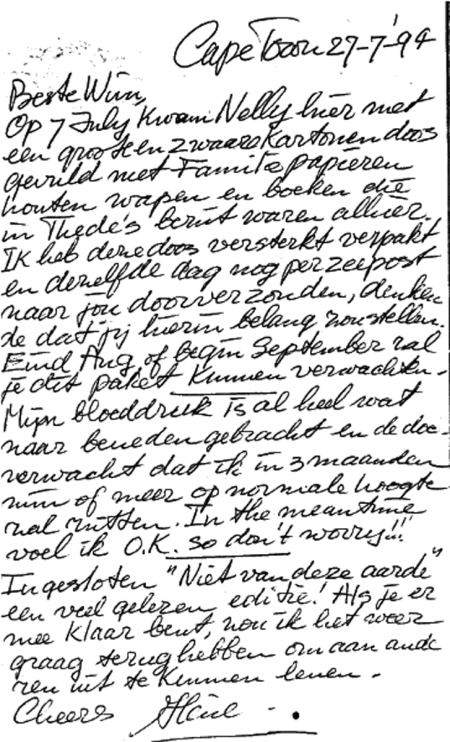 Cape Town 27-7-'94
Beste Wim,
Op 7 July kwam Nelly hier met
een groote en zwaars kartonen doos
gevuld met Familie papieren
houten wapen en boeken die
in Thede's bezit waren alhier.
Ik heb deze doos versterkt verpakt
en dezelfde dag nog per zeepost
naar jou doorverzonden, denken
de dat jij hierin belang zou stellen.
Eind Aug. of begin September zal
je dit paket kunnen verwachten -
Mijn bloeddruk is al heel wat
naar beneden gebracht en de doc-
verwacht dat ik in 3 maanden
min of meer op normale hoogte
zal zitten. In the meantime
voel ik O.K. so don't worry!!!
Ingesloten "Niet van deze aarde"
een veel gelezen editie! Als je er
mee klaar bent, zou ik het weer
graag terug hebben om aan ande
ren uit te kunnen lenen -
Cheers